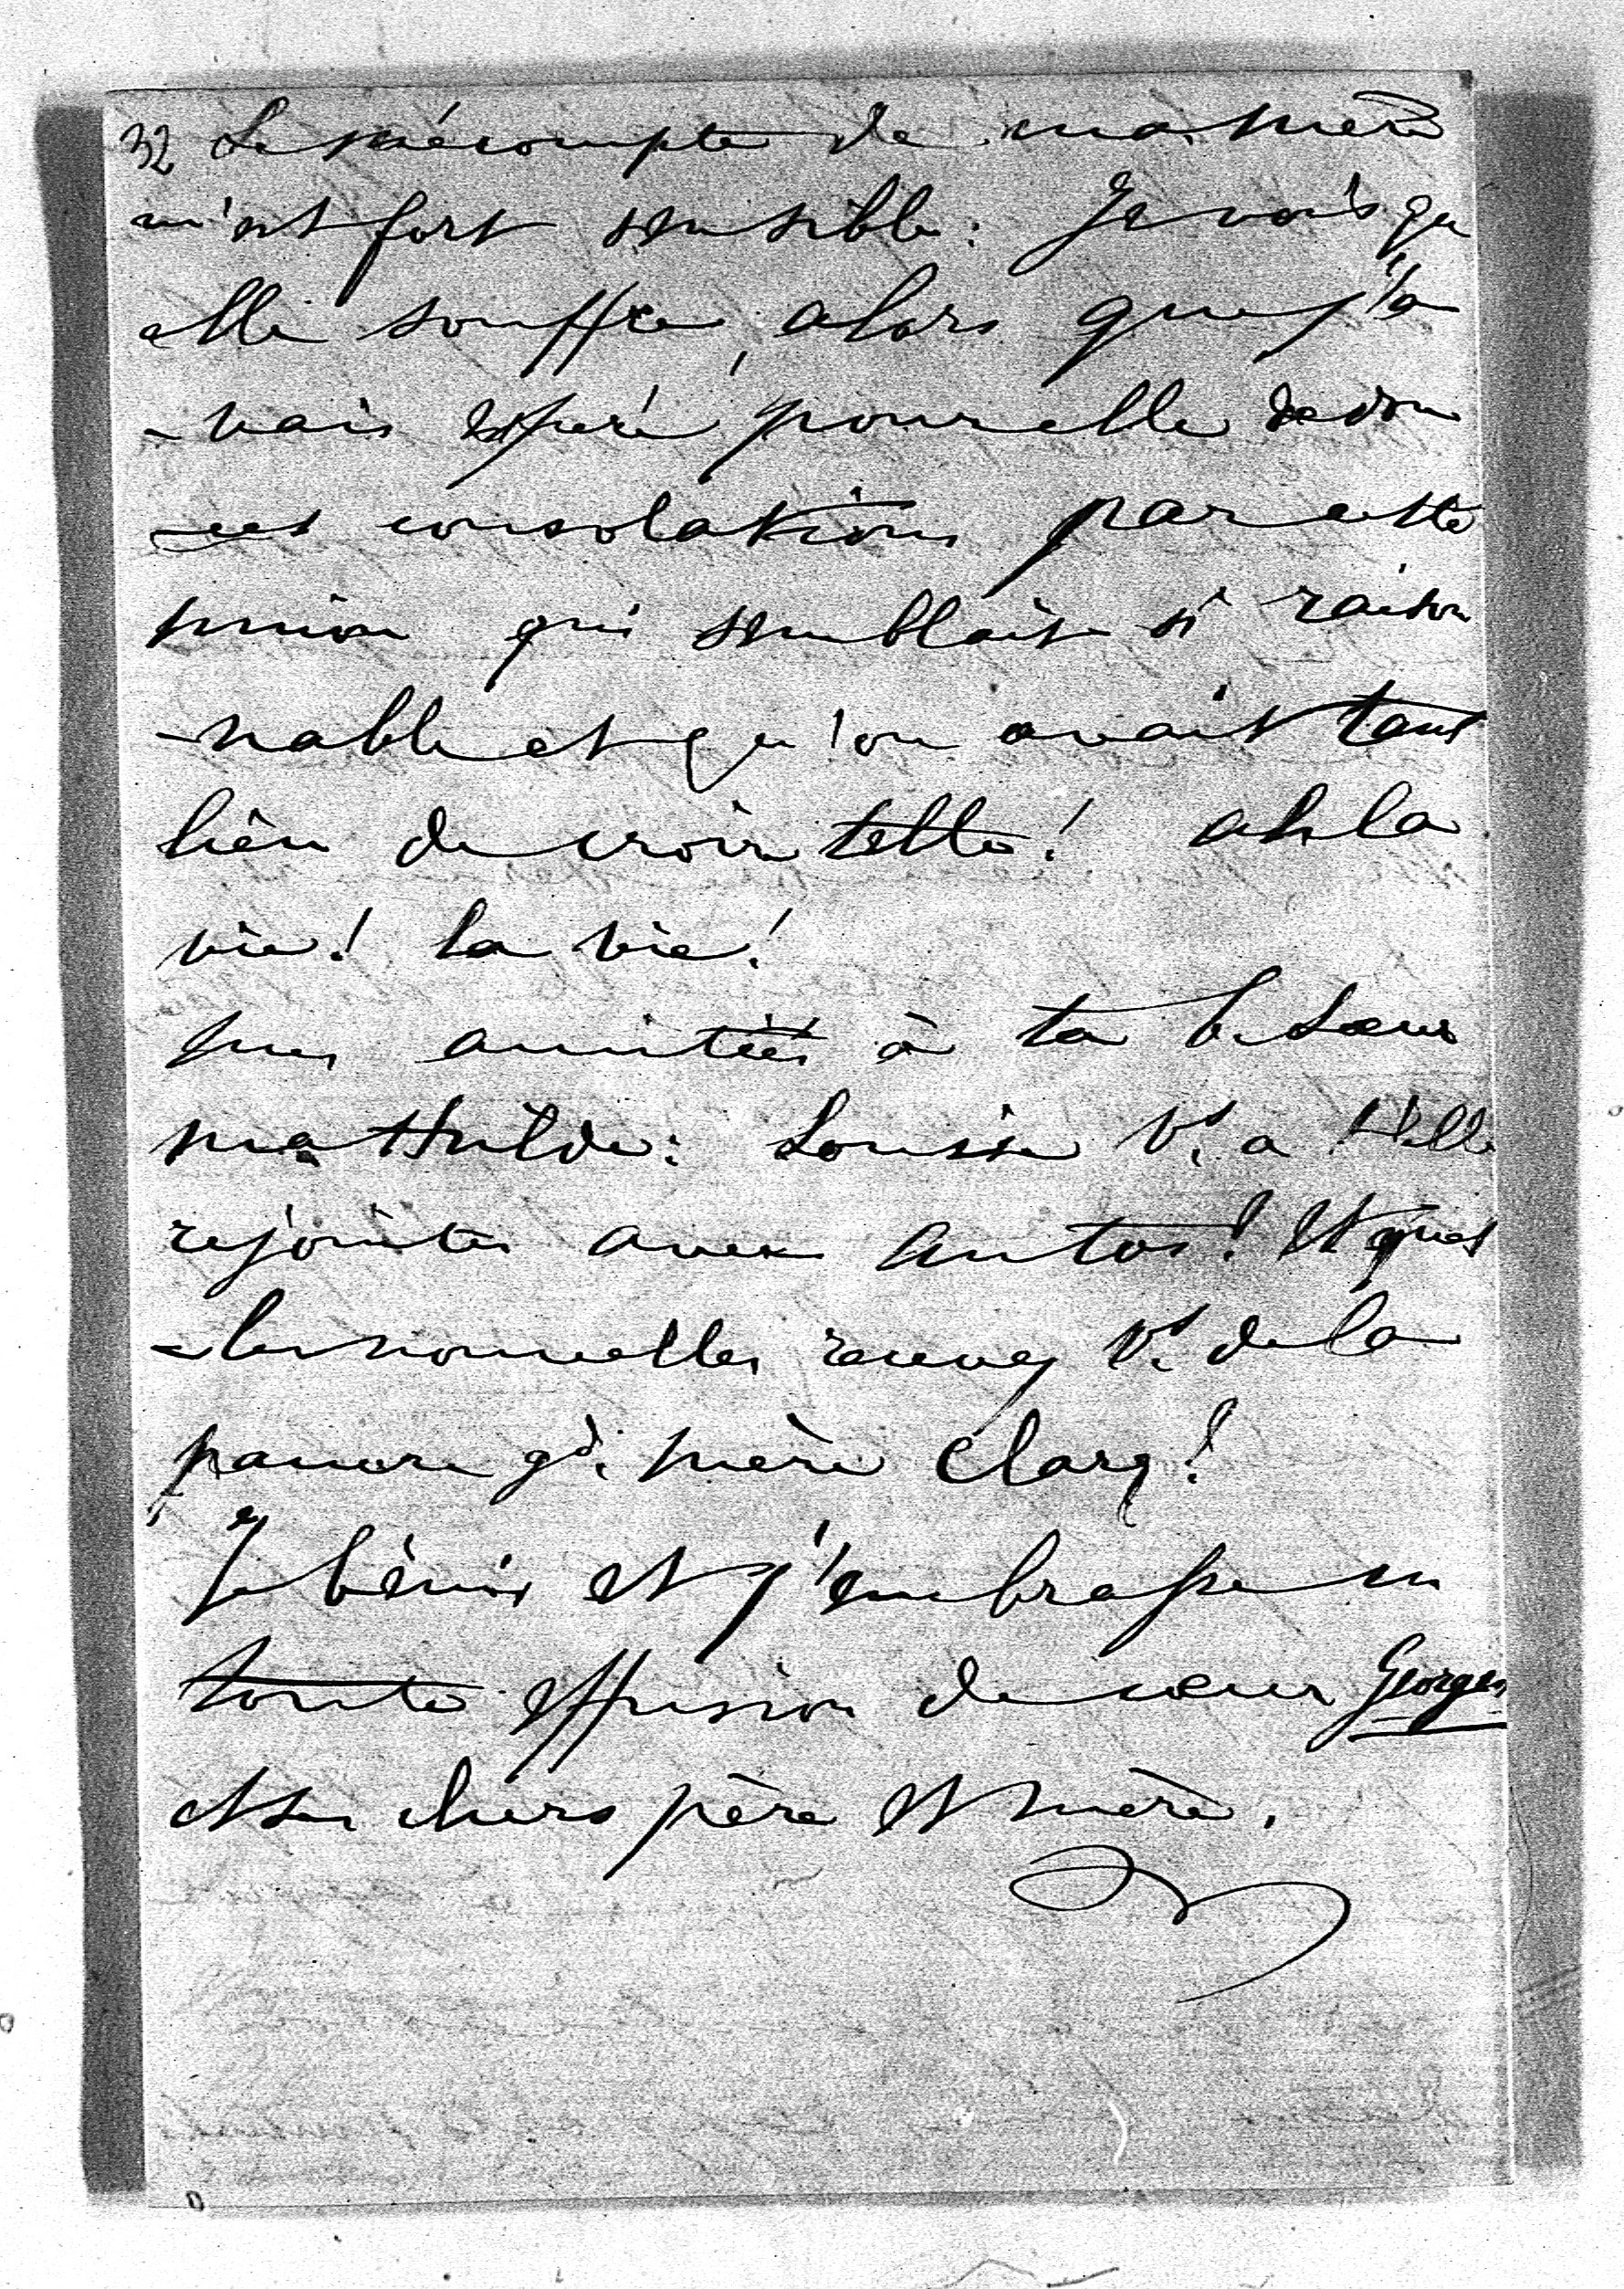 32 Le mécompte de ma mère
m'est fort sensible: Je vois qu
elle souffre, alors que j'a
-vais espéré pour elle de dou
-ces consolations par cette
union qui semblait si raison
-nable et qu'on avait tant
lieu de croire telle! ah la
vie! la vie!
mes amitiés à ta b. soeur
mathilde: Louise vs. a t'elle
rejointes avec Antos? Et quel
-les nouvelles recevez vs. de la
pauvre gd. mère Clarg?
Je bénis et j'embrasse en
toute effusion de coeur Georges
et ses chers père et mère.